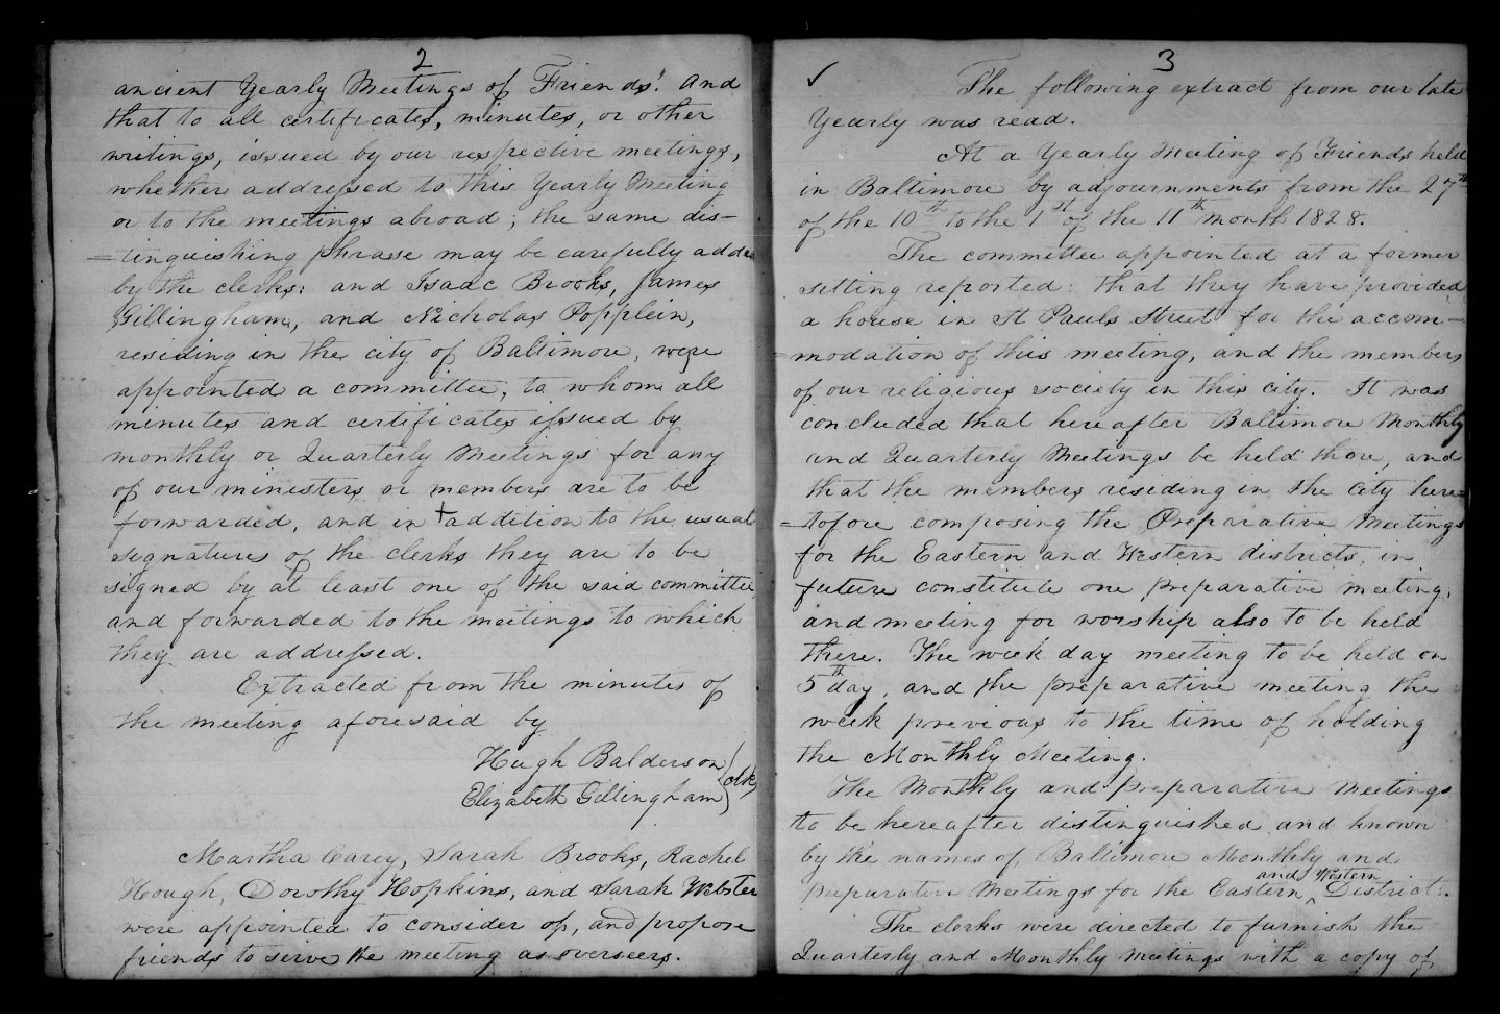 2
ancient Yearly Meetings of Friends". And
that to all certificates, minutes, or other
writings, issued by our respective meetings,
whether addressed to this Yearly Meeting
or to the meetings abroad; the same dis-
=tinguishing phrase may be carefully added
by the clerks: and Isaac Brooks, James
Gillingham, and Nicholas Popplein,
residing in the city of Baltimore, were
appointed a committee, to whom all
minutes and certificates issued by
monthly or Quarterly Meetings for any
of our ministers or members are to be
forwarded, and in addition to the usual
signatures of the clerks they are to be
signed by at least one of the said committee
and forwarded to the meetings to which
they are addressed.
Extracted from the minutes of
the meeting aforesaid by
Hugh Balderson
Elizabeth Gillingham } clks
Martha Carey, Sarah Brooks, Rachel
Hough, Dorothy Hopkins, and Sarah Webster
were appointed to consider of, and propose
friends to serve the meeting as overseers.
3
✓ The following extract from our late
Yearly was read.
At a Yearly Meeting of Friends held
in Baltimore by adjournments from the 27th
of the 10th to the 1st of the 11th month 1828.
The committee appointed at a former
sitting reported: that they have provided
a house in St Pauls Street for the accom-
=modation of this meeting, and the members
of our religious society in this city. It was
concluded that hereafter Baltimore Monthly
and Quarterly Meetings be held there, and
that the members residing in the city here=
=tofore composing the Preparative Meetings
for the Eastern and Western districts, in
future constitute one preparative meeting,
and meeting for worship also to be held
there. The week day meeting to be held on
5th day, and the preparative meeting the
week previous to the time of holding
the Monthly Meeting.
The Monthly and preparative meetings
to be hereafter distinguished and known
by the names of Baltimore Monthly and
preparative Meetings for the Eastern ^ and Western District.
The clerks were directed to furnish the
Quarterly and Monthly Meetings with a copy of